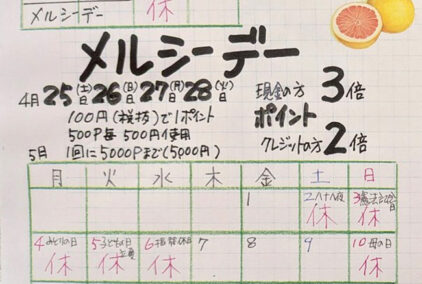 メルシーデー
休
メルシーデー
4月25(土)日26(日)日27(月)日28(火)日
現金の方 3倍
100円(税抜)で1ポイント
ポイント
500P毎500円使用
クレジットの方 2倍
5月 1回に5000Pまで(5000円)
月 火 水 木 金 土 日
1 2八十八夜 3憲法記念日
休 休
4みどりの日 5こどもの日 6振替休日 7 8 9 10母の日
休 休 休 休